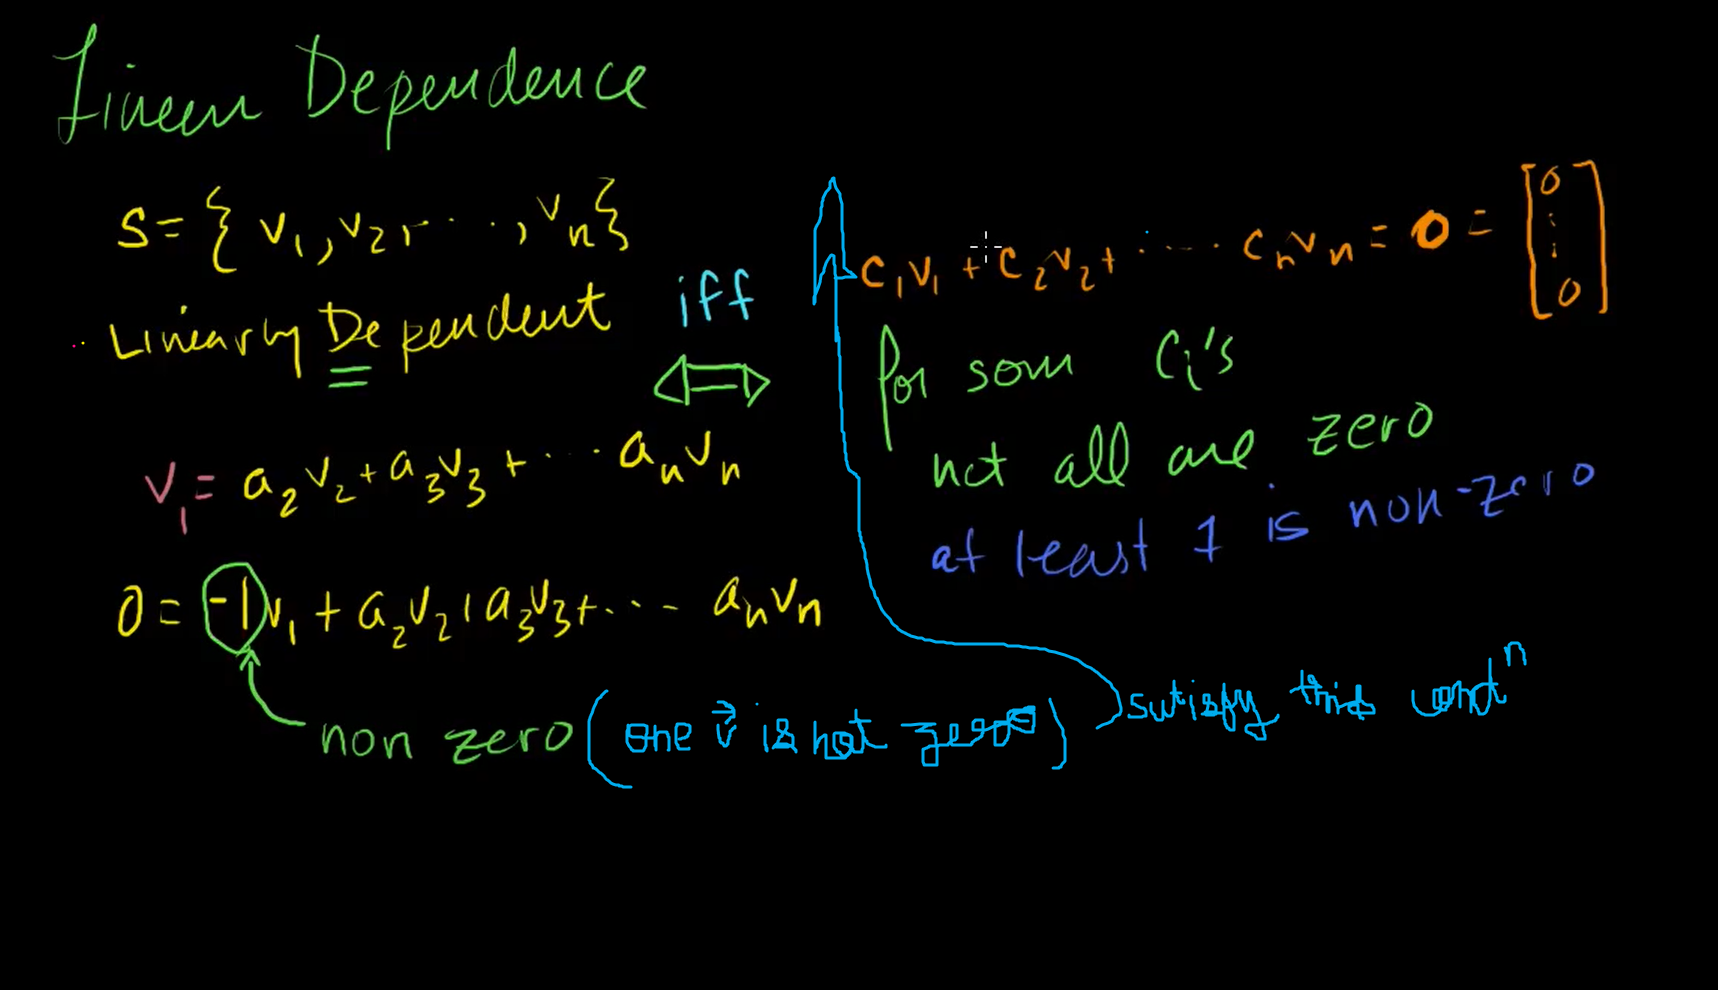 Linear Dependence
S = { v₁, v₂, ..., vₙ }
Linearly Dependent
iff
⇔
c₁v₁ + c₂v₂ + ···· cₙvₙ = 0 = [0 ⋮ 0]
for som cᵢ's
not all are zero
at least 1 is non-zero
v₁ = a₂v₂ + a₃v₃ + ··· aₙvₙ
0 = -1v₁ + a₂v₂ + a₃v₃ + ··· aₙvₙ
non zero (one v⃗ is not zero) satisfy this condⁿ